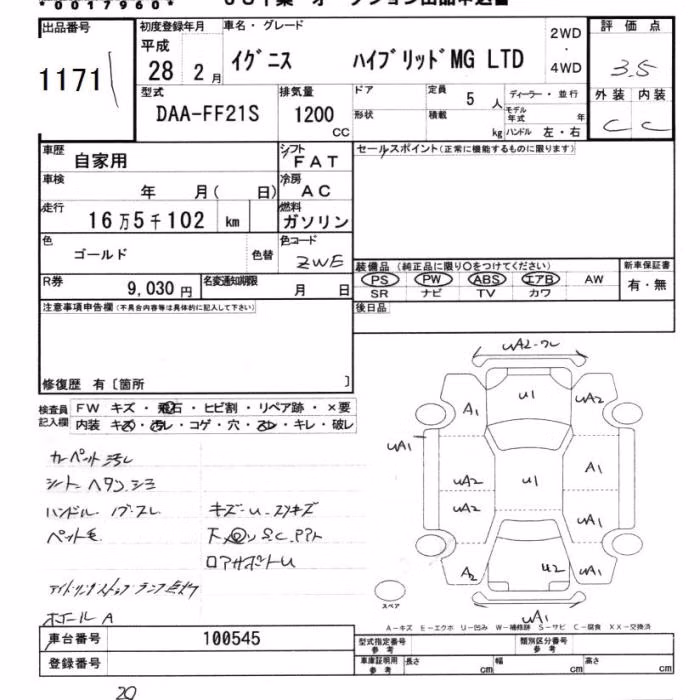 *0017960*
オークション出品申込書
出品番号 初度登録年月 車名・グレード 2WD・4WD 評価点
1171 平成28 2月 イグニス ハイブリッドMG LTD 3.5
型式 排気量 ドア 定員 5人 ディーラー・並行 外装 内装
DAA-FF21S 1200cc 形状 積載 kg モデル年式 年 C C
ハンドル 左・右
車歴 自家用 シフト FAT セールスポイント(正常に機能するものに限ります)
車検 年 月( 日) 冷房 AC
走行 16万5千102 km 燃料 ガソリン
色 ゴールド 色替 色コード ZWE
装備品(純正品に限り○をつけてください) 新車保証書
PS PW ABS エアB AW 有・無
SR ナビ TV カワ
R券 9,030円 名変通知期限 月 日
後日品
注意事項申告欄(不具合内容等は具体的に記入して下さい)
修復歴 有〔箇所 〕
検査員記入欄 FW キズ・飛石・ヒビ割・リペア跡・×要
内装 キズ・汚レ・コゲ・穴・スレ・キレ・破レ
カーペット汚レ
シート ヘタリ.シミ
ハンドル
ペット毛
キズ・U.スリキズ
ロアサポートU
アイドリングストップ ランプ点灯
ホイール A
UA2-ワレ
A1 U1 UA2
UA1
UA2 U1 A1
UA2 UA1
A2 U2 UA1
UA1
スペア
A-キズ E-エクボ U-凹み W-補修跡 S-サビ C-腐食 XX-交換済
車台番号 100545 型式指定番号 参考 類別区分番号 参考
登録番号 車庫証明用 参考 長さ cm 幅 cm 高さ cm
20